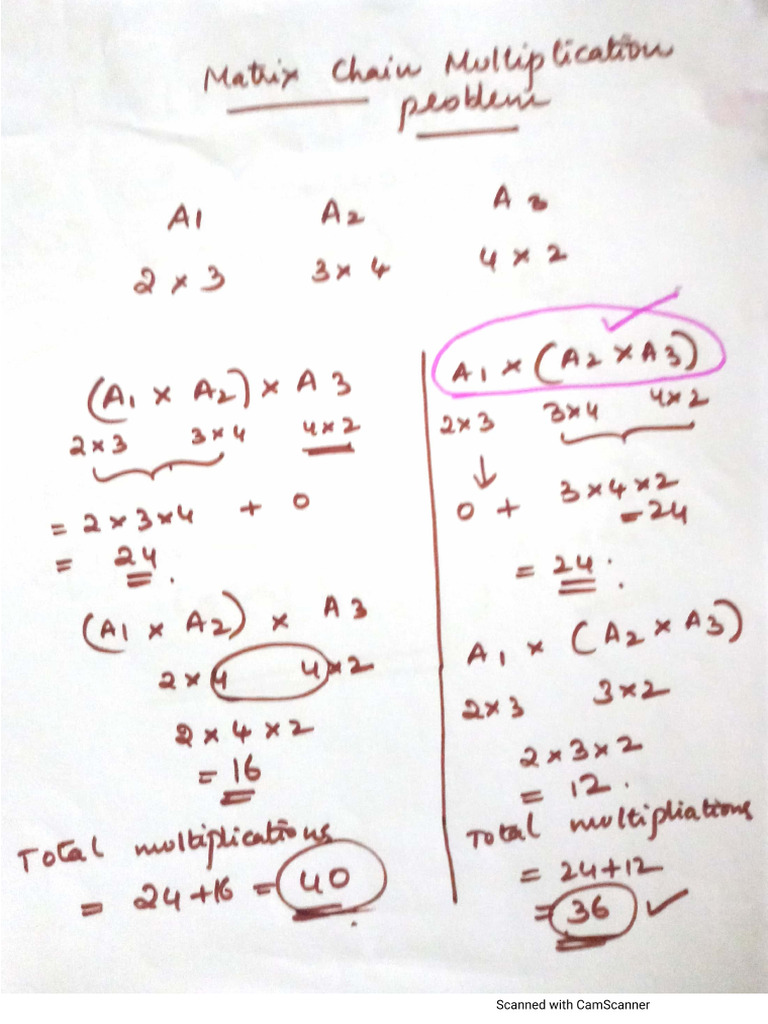 Matrix Chain Multiplication
problem
A1 A2 A3
2 × 3 3 × 4 4 × 2
(A1 × A2) × A3
2×3 3×4 4×2
= 2×3×4 + 0
= 24.
(A1 × A2) × A3
2×4 4×2
2 × 4 × 2
= 16
Total multiplications
= 24+16 = 40.
A1 × (A2 × A3)
2×3 3×4 4×2
↓
0 + 3×4×2
= 24
= 24.
A1 × (A2 × A3)
2×3 3×2
2×3×2
= 12.
Total multipliations
= 24+12
= 36 ✓
Scanned with CamScanner